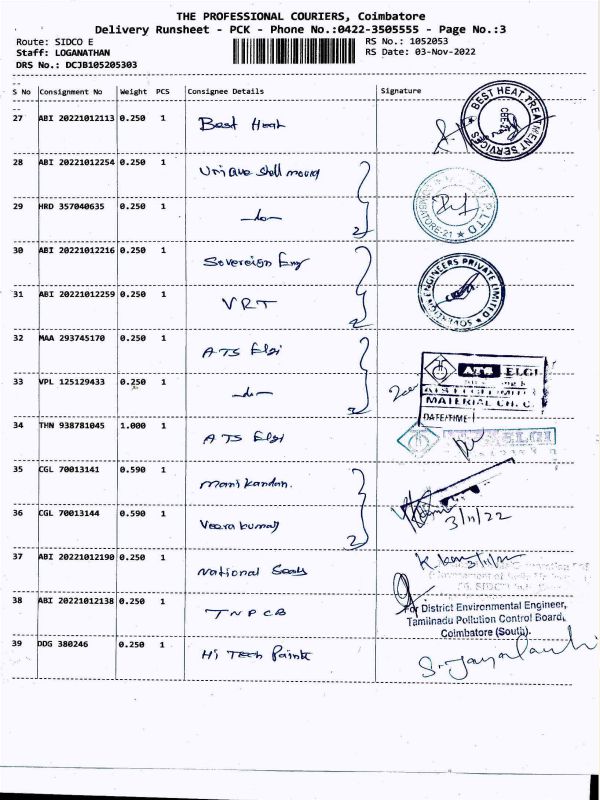 THE PROFESSIONAL COURIERS, Coimbatore
Delivery Runsheet - PCK - Phone No.:0422-3505555 - Page No.:3
Route: SIDCO E
RS No.: 1052053
Staff: LOGANATHAN
RS Date: 03-Nov-2022
DRS No.: DCJB105205303
S No Consignment No Weight PCS Consignee Details Signature
27 ABI 20221012113 0.250 1 Best Heat
BEST HEAT TREATMENT SERVICES
28 ABI 20221012254 0.250 1 Unique Shell mould
29 HRD 357040635 0.250 1 -do- 2
COIMBATORE-21 P.LTD
30 ABI 20221012216 0.250 1 Sovereign Eng
31 ABI 20221012259 0.250 1 VRT 2
SOVEREIGN ENGINEERS PRIVATE LIMITED
32 MAA 293745170 0.250 1 ATS Elgi
33 VPL 125129433 0.250 1 -do- 2
ATS ELGI
ATS ELGI LIMITED
MATERIAL CH. C.
DATE/TIME
34 THN 938781045 1.000 1 ATS Elgi
ATS ELGI
35 CGL 70013141 0.590 1 Manikandan.
36 CGL 70013144 0.590 1 Veerakumar 2
3/11/22
37 ABI 20221012190 0.250 1 National Seals
3/11/22
38 ABI 20221012138 0.250 1 TNPCB
For District Environmental Engineer,
Tamilnadu Pollution Control Board,
Coimbatore (South).
39 DDG 380246 0.250 1 Hi Tech Paints